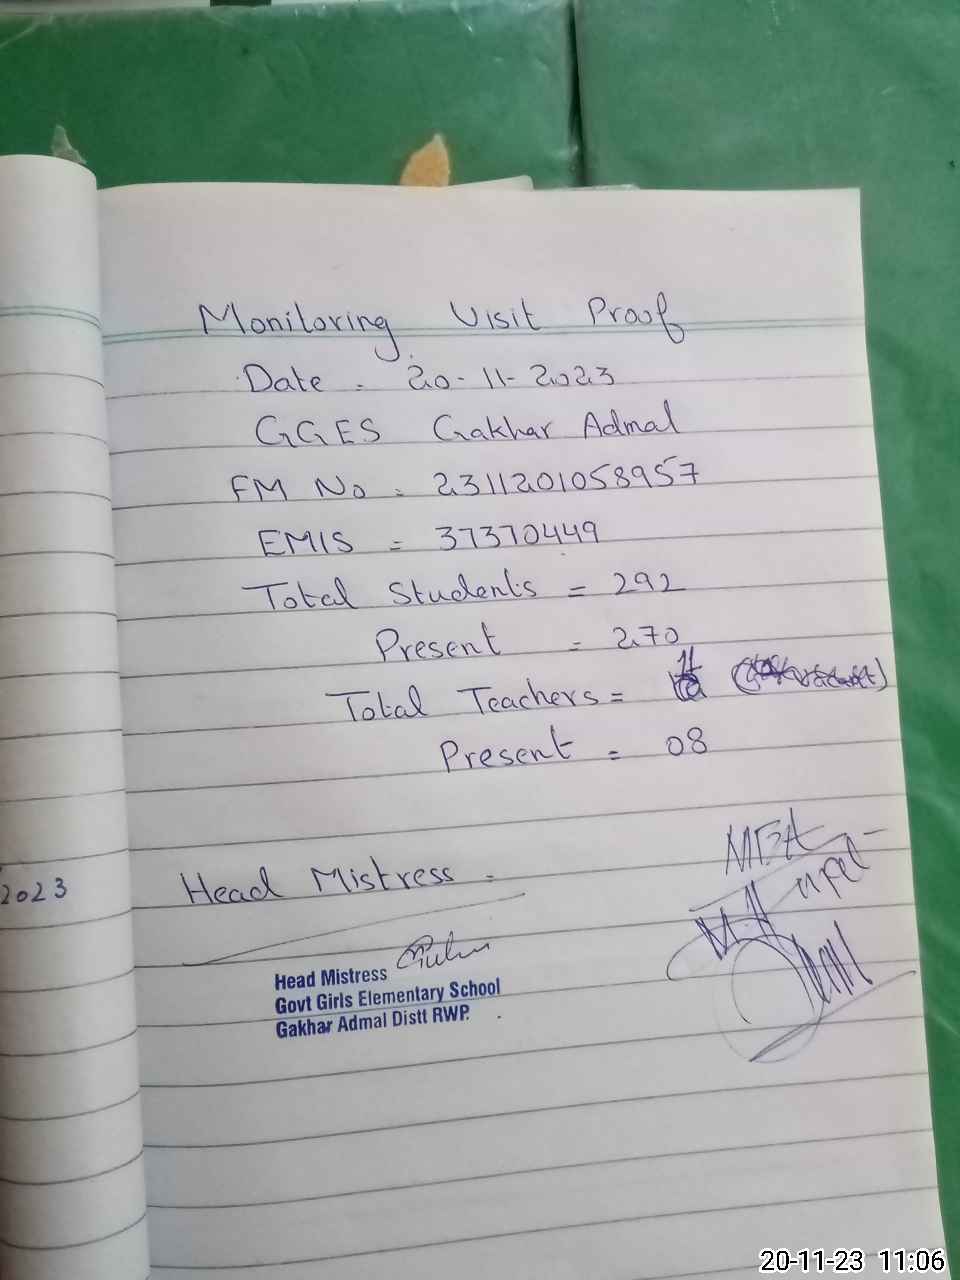 Monitoring Visit Proof
Date - 20-11-2023
GGES Gakhar Admal
FM No = 2311201058957
EMIS = 37370449
Total Students = 292
Present = 270
Total Teachers =
Present = 08
2023
Head Mistress
MEA
Head Mistress
Govt Girls Elementary School
Gakhar Admal Distt RWP.
20-11-23 11:06